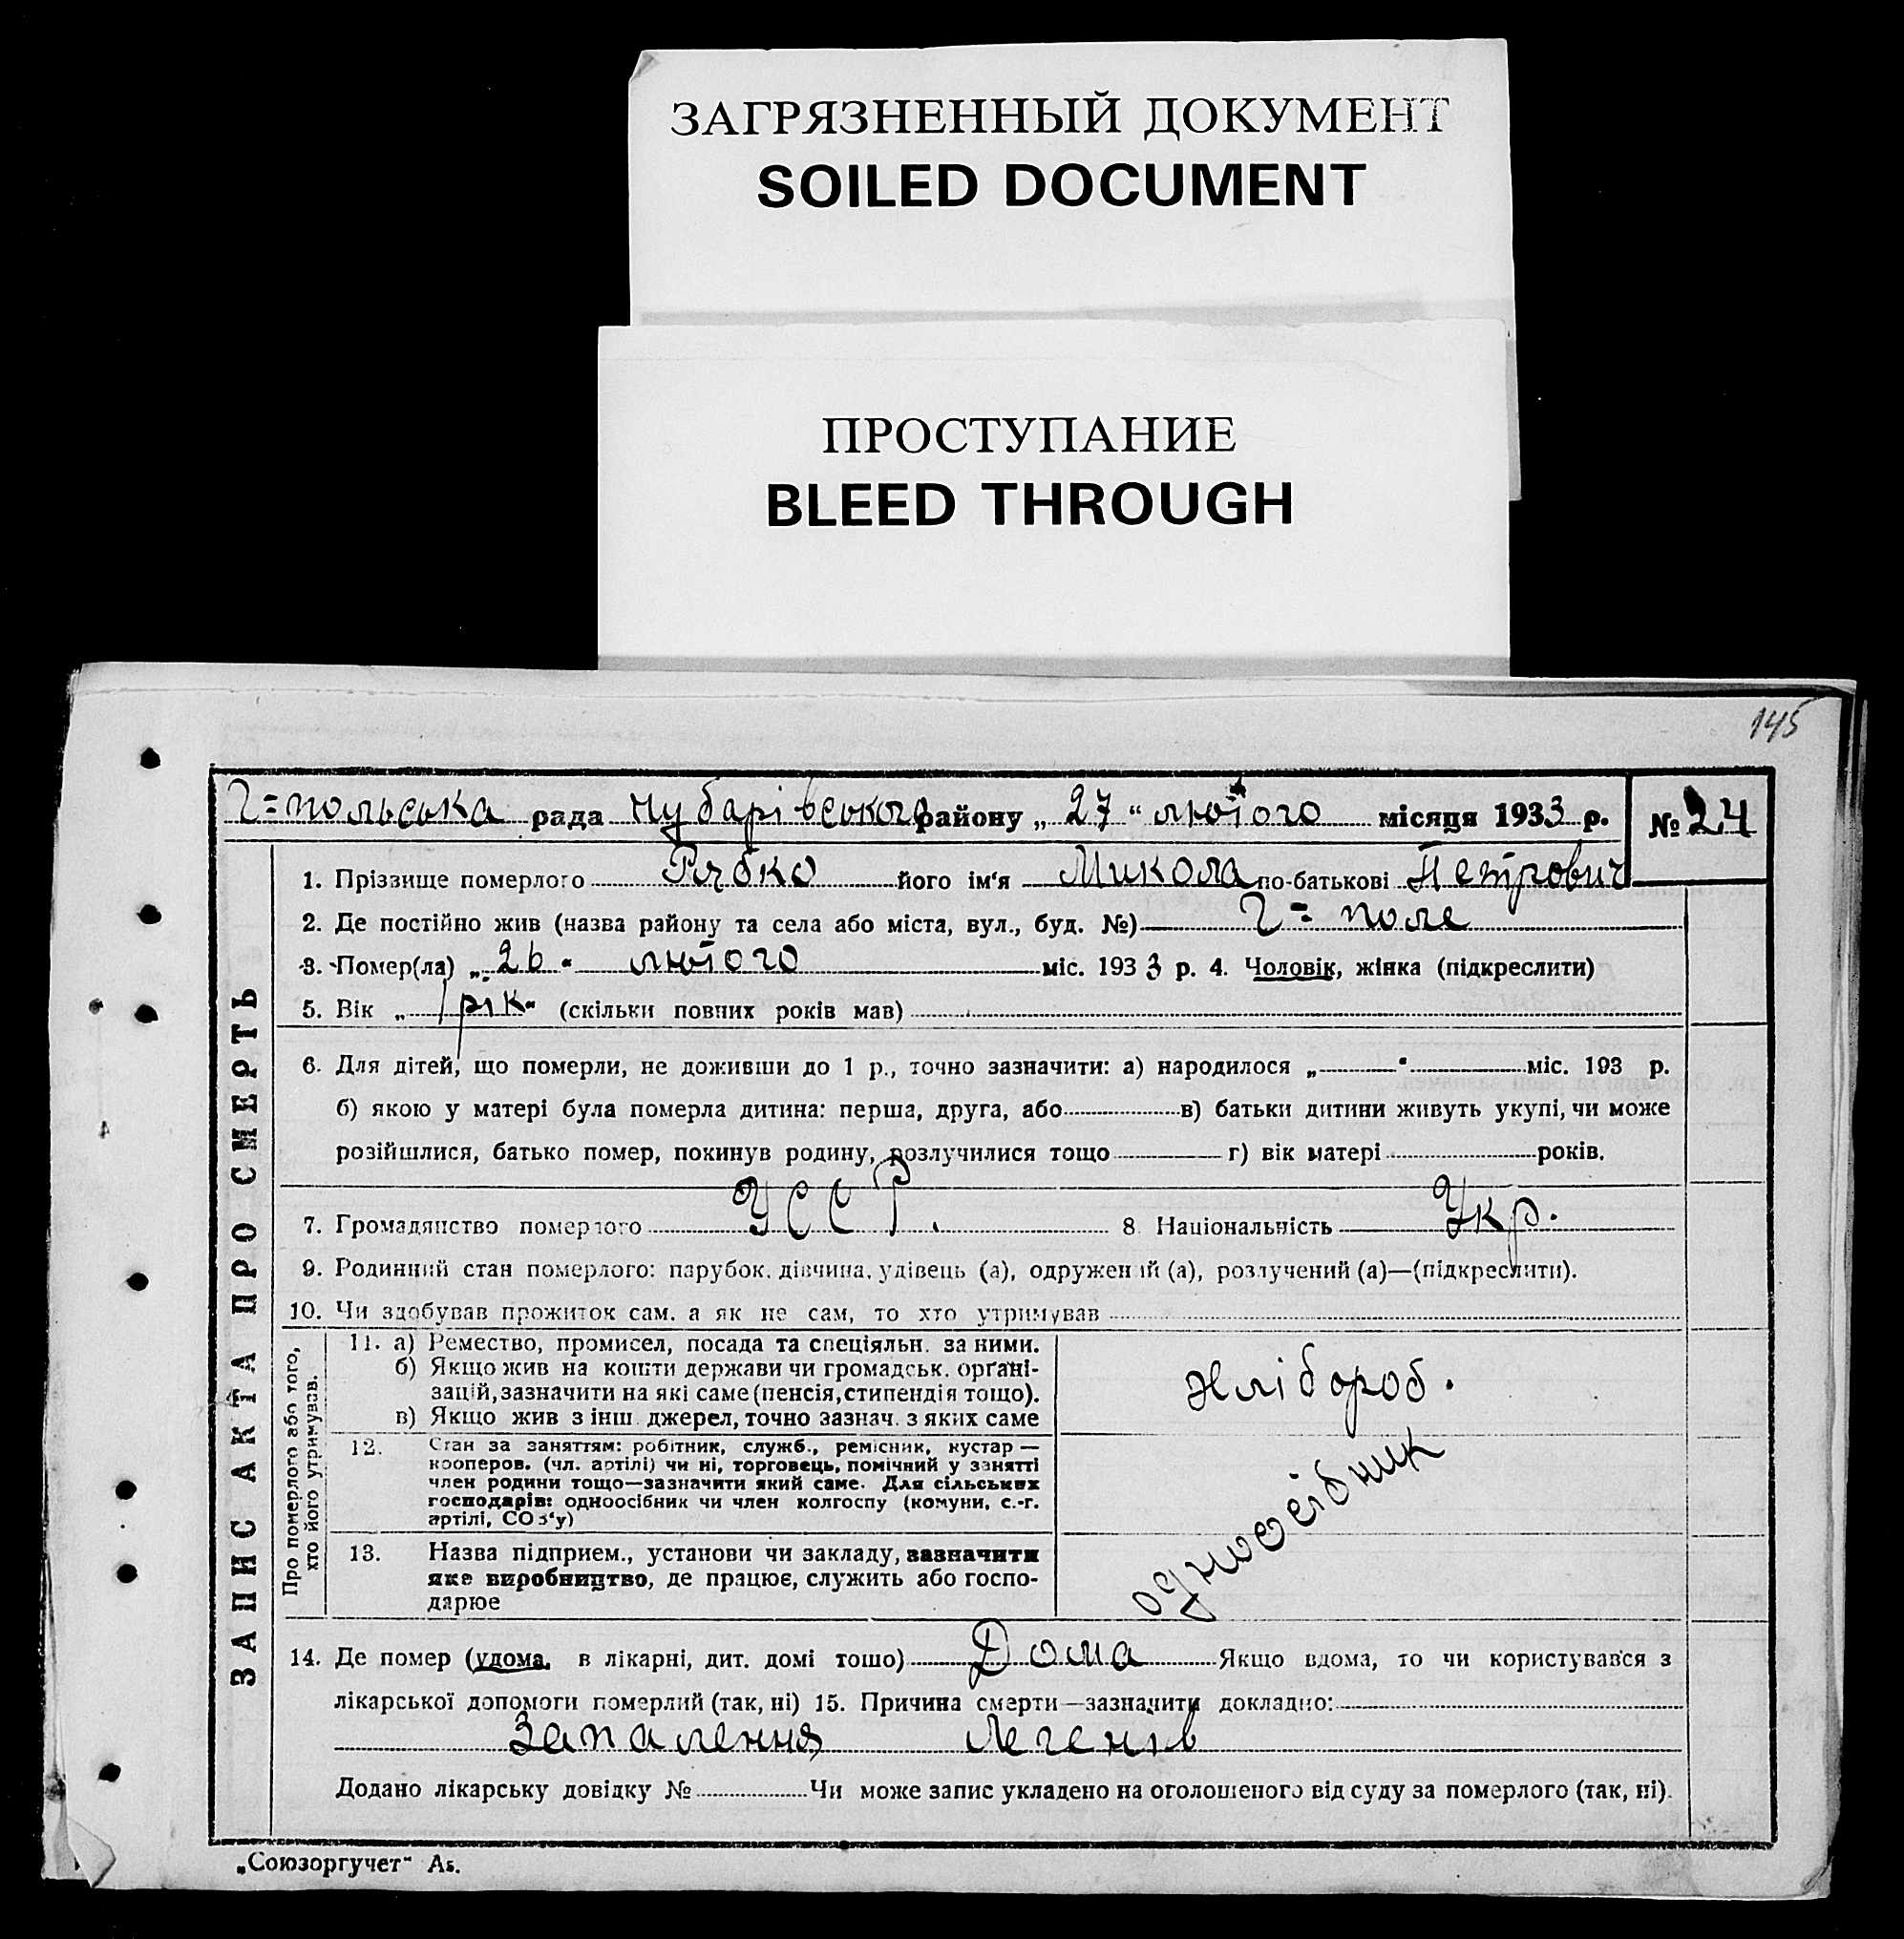 ЗАГРЯЗНЕННЫЙ ДОКУМЕНТ
SOILED DOCUMENT
ПРОСТУПАНИЕ
BLEED THROUGH
145
Г=польська рада Чубарівського району „27“ лютого місяця 1933 р. № 24
1. Прізвище померлого Рябко його ім'я Микола по-батькові Петрович
2. Де постійно жив (назва району та села або міста, вул., буд. №) Г= поле
3. Помер(ла) „26“ лютого міс. 1933 р. 4. Чоловік, жінка (підкреслити)
5. Вік „1 рік“ (скільки повних років мав)
6. Для дітей, що померли, не доживши до 1 р., точно зазначити: а) народилося „ “ міс. 193 р.
б) якою у матері була померла дитина: перша, друга, або в) батьки дитини живуть укупі, чи може
розійшлися, батько помер, покинув родину, розлучилися тощо г) вік матері років.
7. Громадянство померлого УССР. 8 Національність Укр.
9. Родинний стан померлого: парубок, дівчина, удівець (а), одружений (а), розлучений (а)—(підкреслити).
10. Чи здобував прожиток сам, а як не сам, то хто утримував
ЗАПИС АКТА ПРО СМЕРТЬ
Про померлого або того,
хто його утримував.
11. а) Ремество, промисел, посада та спеціяльн. за ними.
б) Якщо жив на кошти держави чи громадськ. орґані-
зацій, зазначити на які саме (пенсія, стипендія тощо).
в) Якщо жив з інш. джерел, точно зазнач. з яких саме
Хлібороб.
12. Стан за заняттям: робітник, служб., ремісник, кустар—
кооперов. (чл. артілі) чи ні, торговець, помічний у занятті
член родини тощо—зазначити який саме. Для сільських
господарів: одноосібник чи член колгоспу (комуни, с.-г.
артілі, СОЗ'у)
одноосібник
13. Назва підприєм., установи чи закладу, зазначити
яке виробництво, де працює, служить або госпо-
дарює
14. Де помер (удома, в лікарні, дит. домі тощо) Дома Якщо вдома, то чи користувався з
лікарської допомоги померлий (так, ні) 15. Причина смерти—зазначити докладно:
Запалення легенів
Додано лікарську довідку № Чи може запис укладено на оголошеного від суду за померлого (так, ні).
„Союзоргучет“ А5.